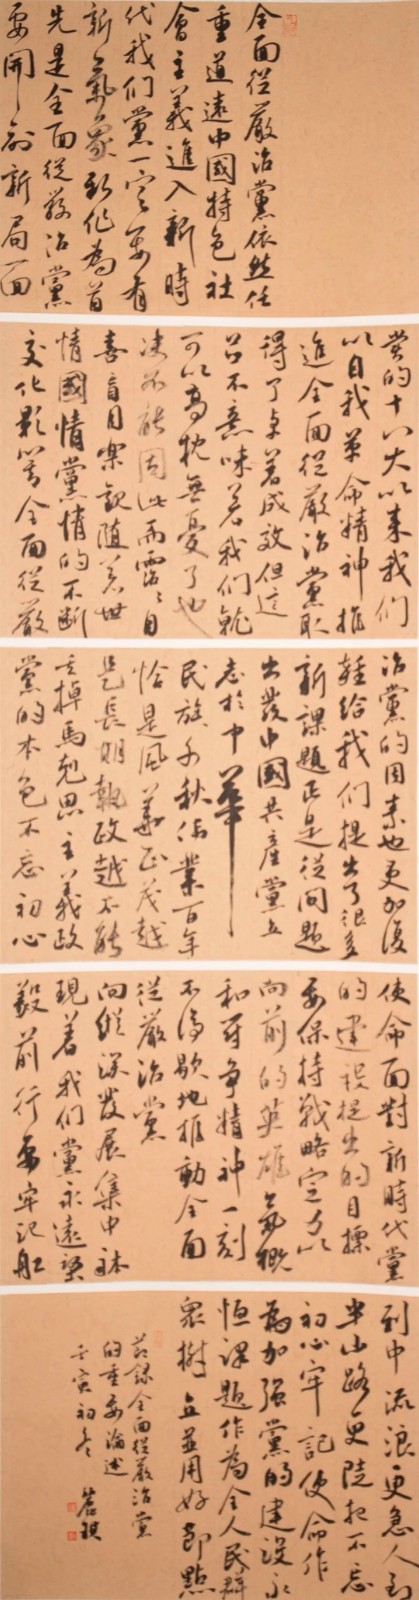 全面從嚴治黨依然任
重道遠中國特色社
會主義進入新時
代我们黨一定要有
新氣象新作為首
先是全面從嚴治黨
要開創新局面
黨的十八大以来我们
以自我革命精神推
進全面從嚴治黨取
得了卓著成效但這
并不意味着我们就
可以高枕無憂了也
决不能因此而沾沾自
喜盲目樂觀随着世
情國情黨情的不断
变化影响全面從嚴
治黨的因素也更加復
雜给我们提出了很多
新課題正是從问題
出发中國共産黨立
志於中華
民族千秋伟業百年
恰是風華正茂越
是長期執政越不能
丢掉馬克思主義政
黨的本色不忘初心
使命面對新時代黨
的建設提出的目標
要保持戰略定力以
向前的英雄氣概
和斗争精神一刻
不停歇地推動全面
從嚴治黨
向縱深發展集中体
現着我们黨永遠
毅前行要牢记船
到中流浪更急人到
半山路更陡把不忘
初心牢記使命作
為加强黨的建設永
恒课題作為全人民群
眾樹立並用好
节録全面從嚴治黨
的重要論述
壬寅初冬